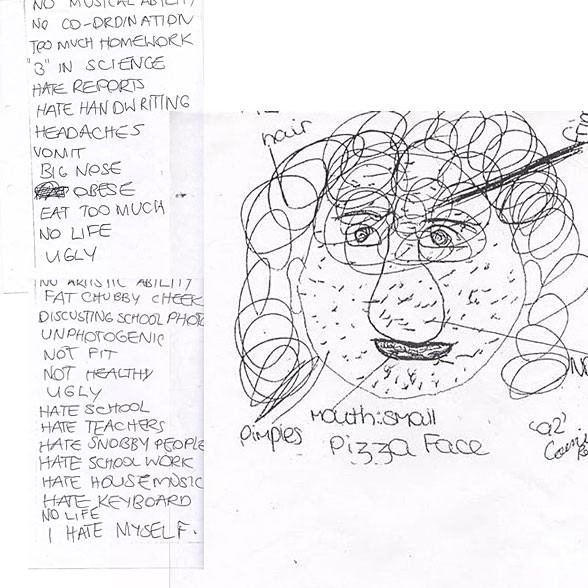 NO MUSICAL ABILITY
NO CO-ORDINATION
TOO MUCH HOMEWORK
"3" IN SCIENCE
HATE REPORTS
HATE HANDWRITING
HEADACHES
VOMIT
BIG NOSE
OBESE
EAT TOO MUCH
NO LIFE
UGLY
NO ARTISTIC ABILITY
FAT CHUBBY CHEEK
DISCUSTING SCHOOL PHOTO
UNPHOTOGENIC
NOT FIT
NOT HEALTHY
UGLY
HATE SCHOOL
HATE TEACHERS
HATE SNOBBY PEOPLE
HATE SCHOOL WORK
HATE HOUSEMUSIC
HATE KEYBOARD
NO LIFE
I HATE MYSELF.
hair
Pimples
Mouth: small
Pizza Face
'92'